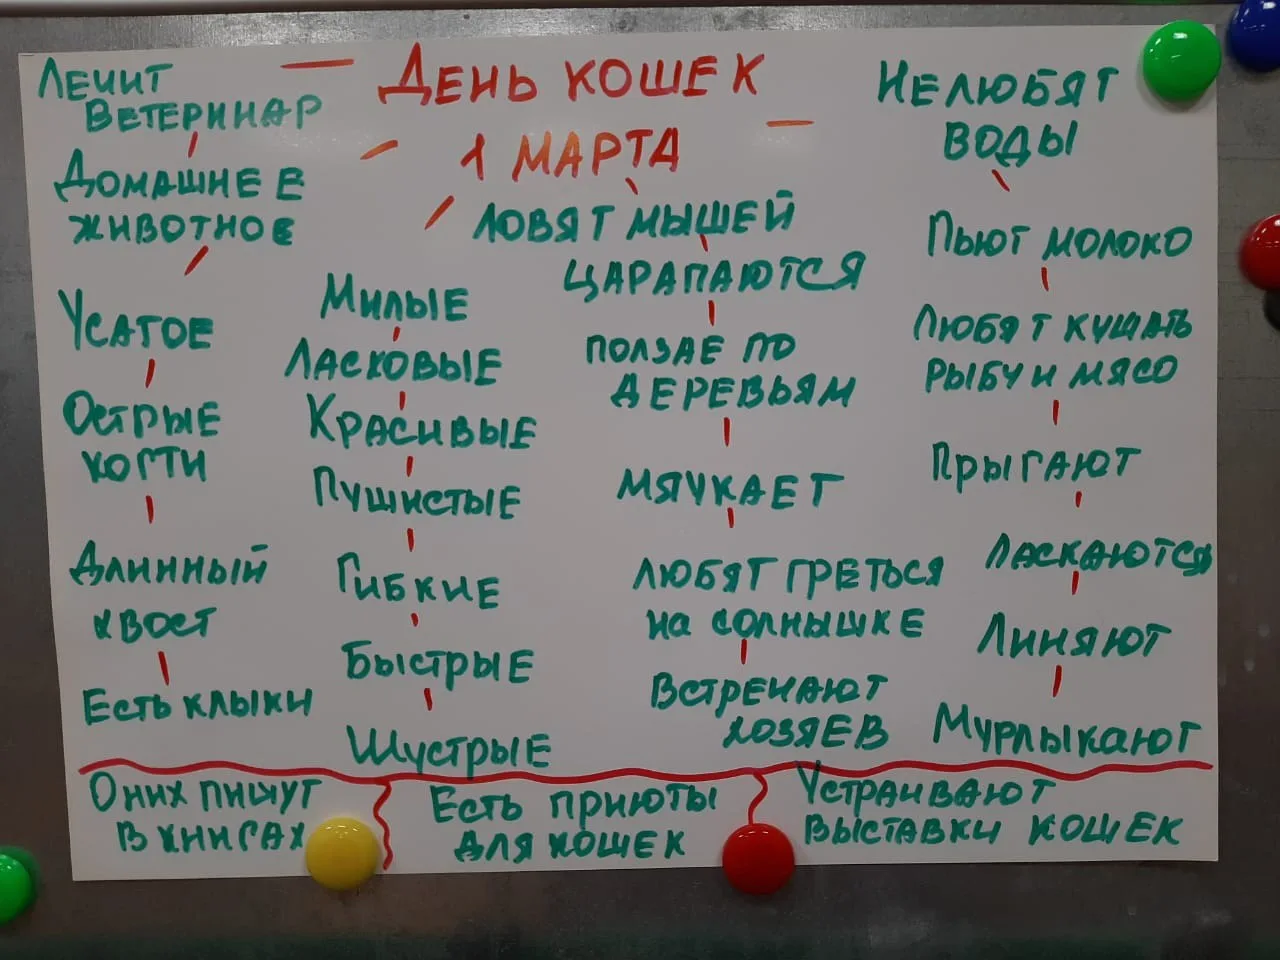 ДЕНЬ КОШЕК
1 МАРТА
ЛЕЧИТ
ВЕТЕРИНАР
ДОМАШНЕЕ
ЖИВОТНОЕ
УСАТОЕ
ОСТРЫЕ
КОГТИ
ДЛИННЫЙ
ХВОСТ
ЕСТЬ КЛЫКИ
МИЛЫЕ
ЛАСКОВЫЕ
КРАСИВЫЕ
ПУШИСТЫЕ
ГИБКИЕ
БЫСТРЫЕ
ШУСТРЫЕ
ЛОВЯТ МЫШЕЙ
ЦАРАПАЮТСЯ
ПОЛЗАЕ ПО
ДЕРЕВЬЯМ
МЯУКАЕТ
ЛЮБЯТ ГРЕТЬСЯ
НА СОЛНЫШКЕ
ВСТРЕЧАЮТ
ХОЗЯЕВ
НЕЛЮБЯТ
ВОДЫ
ПЬЮТ МОЛОКО
ЛЮБЯТ КУШАТЬ
РЫБУ И МЯСО
ПРЫГАЮТ
ЛАСКАЮТСЯ
ЛИНЯЮТ
МУРЛЫКАЮТ
О НИХ ПИШУТ
В КНИГАХ
ЕСТЬ ПРИЮТЫ
ДЛЯ КОШЕК
УСТРАИВАЮТ
ВЫСТАВКИ КОШЕК